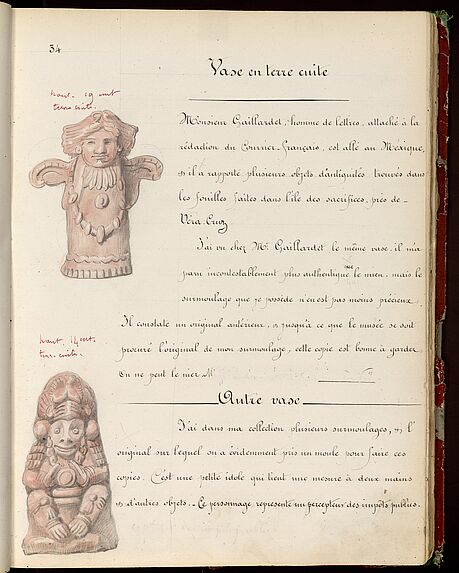 34
Vase en terre cuite
haut. 19 cent
terre cuite.
Monsieur Gaillardet, homme de lettres, attaché à la
rédaction du Courrier-Français, est allé au Mexique,
& il a rapporté plusieurs objets d'antiquités trouvés dans
les fouilles faites dans l'ile des sacrifices, près de-
Véra Cruz
J'ai vu chez Mr. Gaillardet le même vase, il m'a
paru incontestablement plus authentique que le mien, mais le
surmoulage que je possède n'en est pas moins précieux.
Il constate un original antérieur, & jusqu'à ce que le musée se soit
procuré l'original de mon surmoulage, cette copie est bonne à garder.
On ne peut le nier.
haut. 14 cent.
terr. cuite.
Autre vase
J'ai dans ma collection plusieurs surmoulages, & l'
original sur lequel on a évidemment pris un moule pour faire ces
copies. C'est une petite idole qui tient une mesure à deux mains
& d'autres objets. - Ce personnage représente un percepteur des impôts publics.